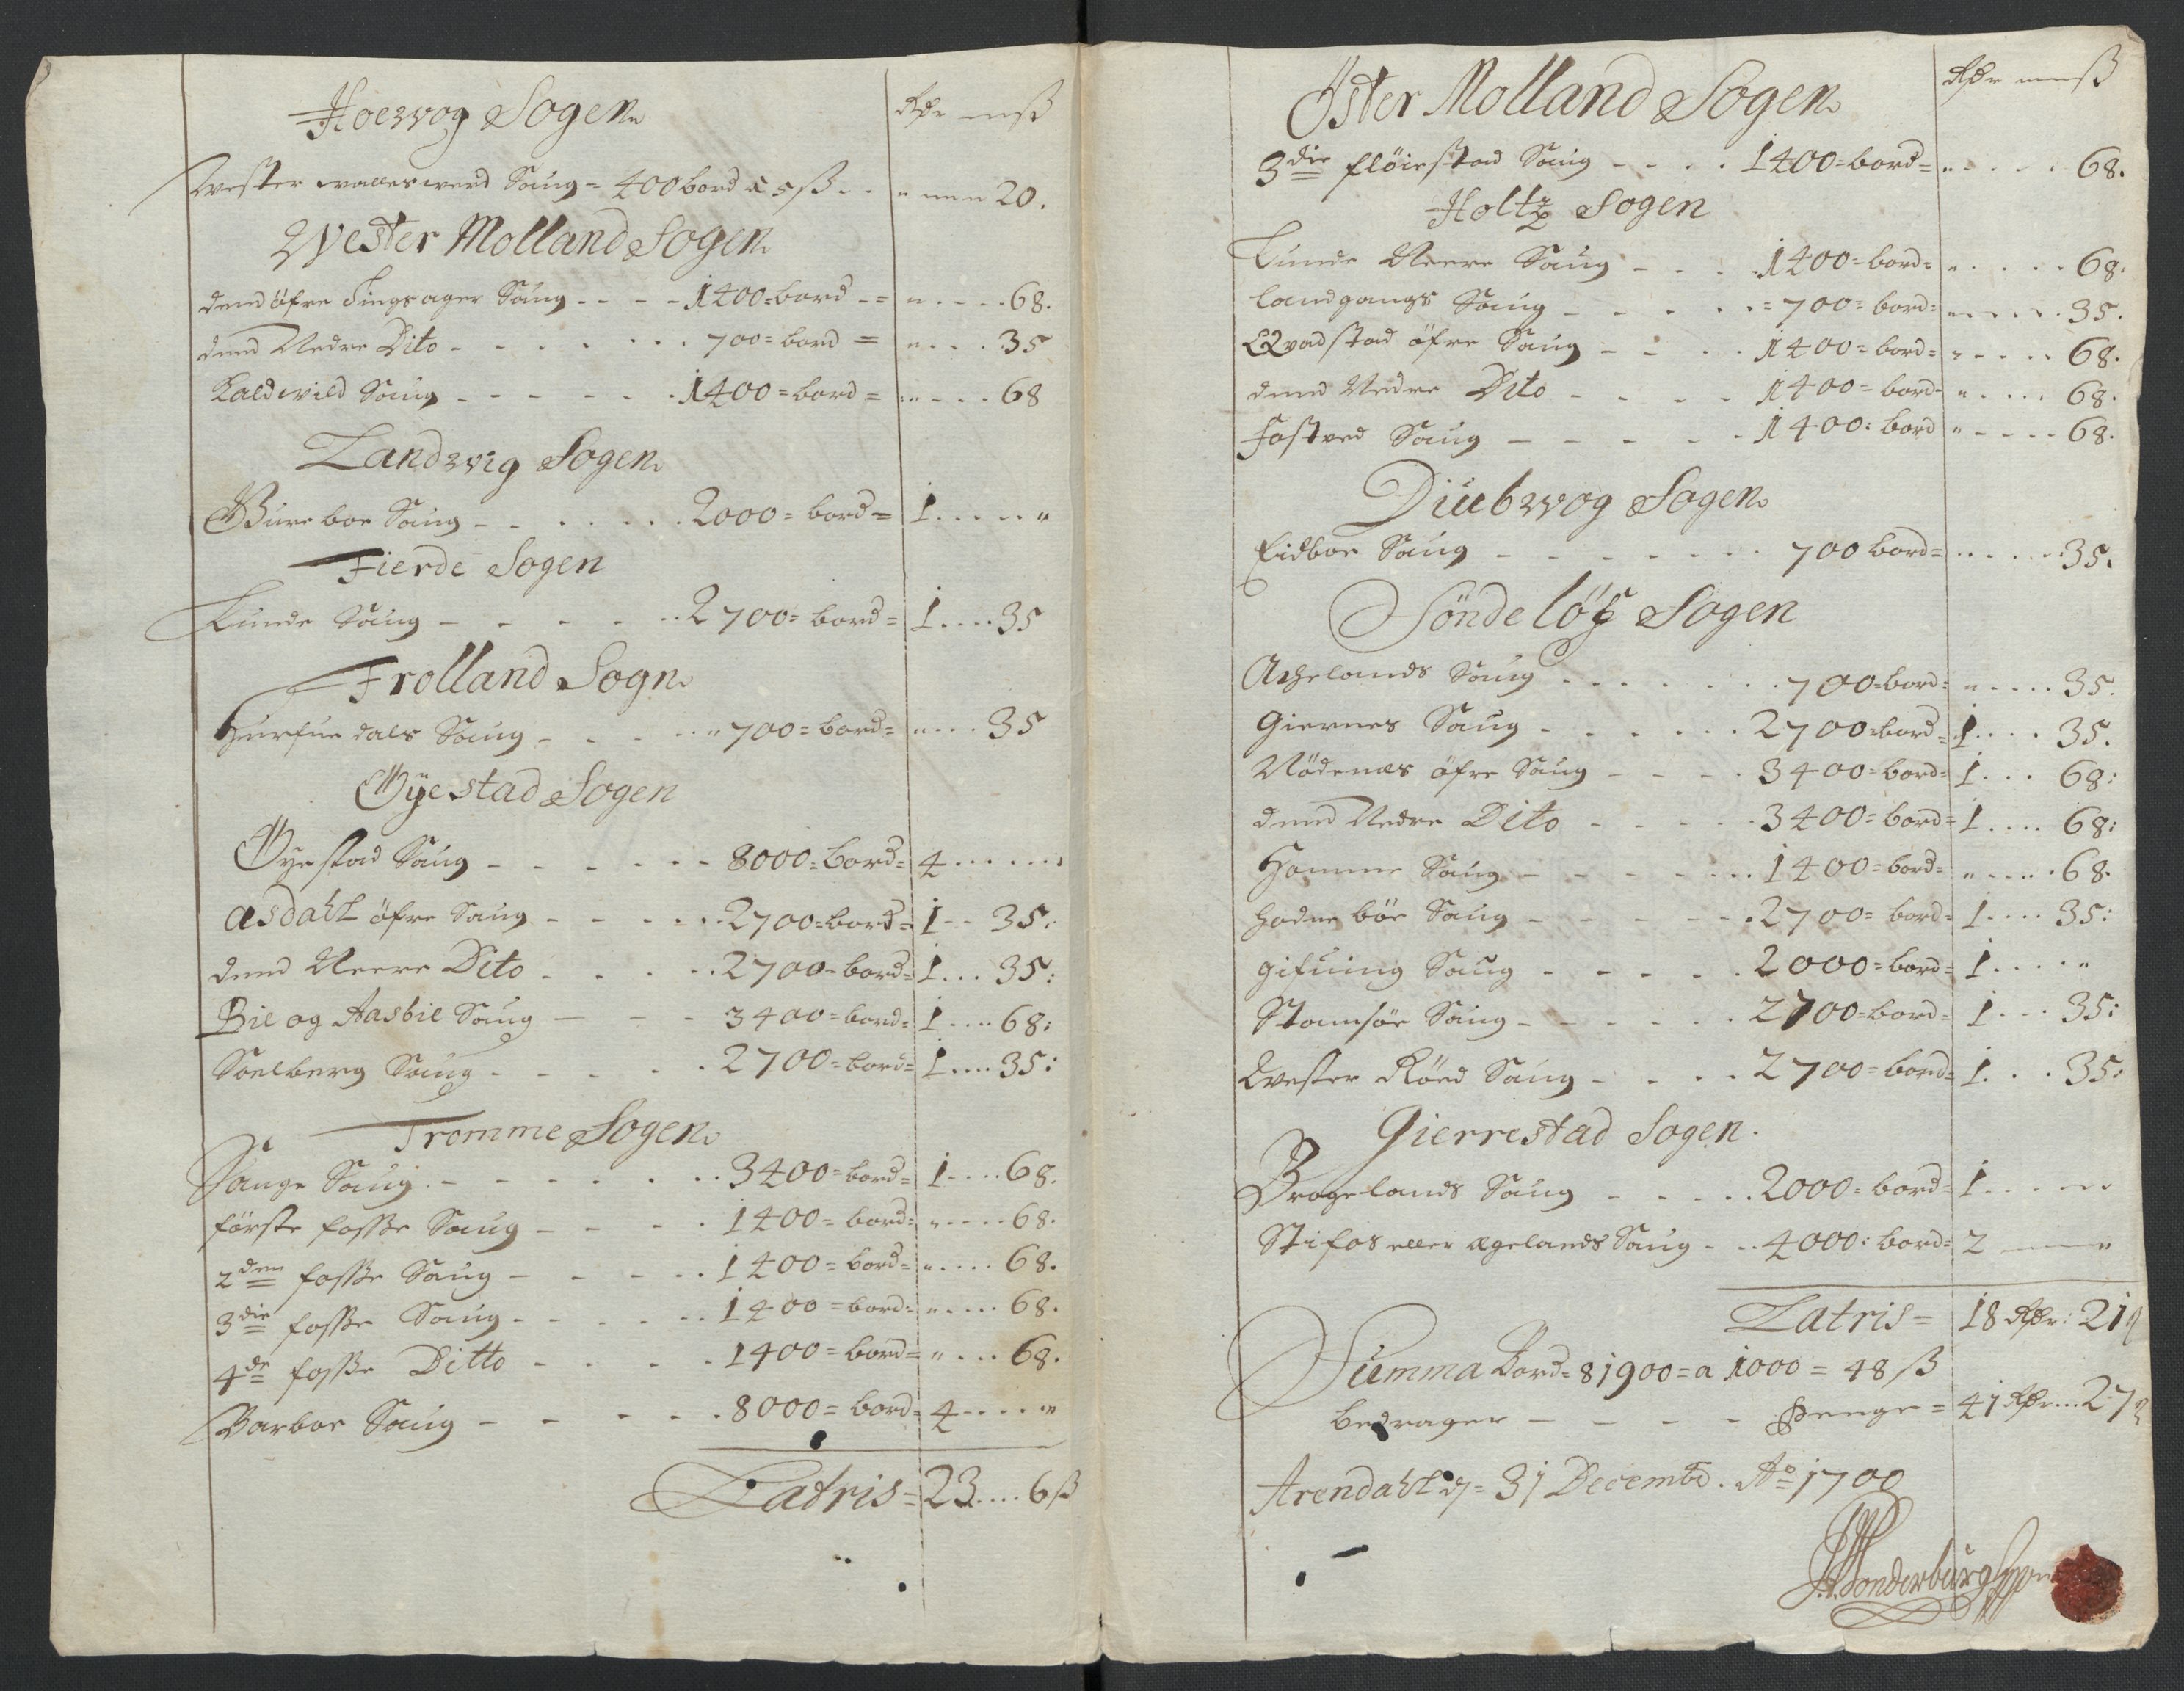 Hoewog Sogen
Rdr ß
Wester walleswerd Saug = 400 bord a 5 ß . . " 20.
Wester Molland Sogen
dend öfre Tingsager Saug - - - - 1400 = bord - = " - - - - 68.
dend Nedre Dito - - - - 700 = bord = " - - - 35
Kaldvild Saug - - - - 1400 = bord = " - - - 68
Landzvig Sogen
Bureboe Saug - - - - 2000 = bord = 1 . . . . "
Fierde Sogen
Lunde Saug - - - - 2700 = bord = 1 . . . . 35
Frolland Sogn
dals Saug - - - - 700 = bord = " . . . 35
Öyestad Sogen
Öyestad Saug - - - - 8000 = bord = 4 . . . . .
Asdahl öfre Saug - - - - 2700 = bord = 1 - - 35:
dend Neere Dito - - - - 2700 = bord = 1 . . . 35:
Bie og Aasbie Saug - - - 3400 = bord = 1 . . . . 68:
Soelberg Saug - - - - 2700 = bord = 1 . . . . 35:
Tromme Sogen
Sange Saug - - - - 3400 = bord = 1 . . . . 68.
förste fosße Saug - - - - 1400 = bord = " - - - - 68.
2den fosße Saug - - - - 1400 = bord = " . . . . 68.
3die fosße Saug - - - - 1400 = bord = " . . . . 68.
4de fosße Ditto - - - - 1400 = bord = " . . . 68.
Barboe Saug - - - - 8000 = bord = 4 . . . . "
Latris = 23 . . . . 6 ß
Öster Molland Sogen
Rdr ß
3die fløiestad Saug - - - - 1400 = bord = " . . . . 68.
Holtz Sogen
Lunde Neere Saug - - - - 1400 = bord = " . . . . 68.
Landgangs Saug - - - - = 700 = bord = " . . . . 35.
Qvadstad öfre Saug - - - - 1400 = bord = " . . . . 68.
dend Nedre Dito - - - - 1400 = bord = " . . . . 68.
Fostved Saug - - - - 1400: bord " - - - - 68.
Diubwog Sogen
Eidboe Saug - - - - 700 bord = . . . . . 35.
Söndelöf Sogen
Agelands Saug - - - - 700 = bord = " . . . . 35.
Giernes Saug - - - - 2700 = bord = 1 . . . . 35.
Nödenæs öfre Saug - - - - 3400 = bord = 1 . . . 68:
dend Nedre Dito - - - - 3400 = bord = 1 . . . . 68:
Homme Saug - - - - 1400 = bord = " . . . . 68.
Hodneböe Saug - - - - 2700 = bord = 1 . . . . 35:
gifuing Saug - - - - 2000 = bord = 1 . . . . "
Stamsöe Saug - - - - 2700 = bord = 1 . . . 35:
Wester Röed Saug - - - - 2700 = bord = 1 . . . 35:
Gierrestad Sogen.
Brogelands Saug - - - - 2000 = bord = 1 . . . .
Stifos eller Egelands Saug - . . 4000: bord = 2 — "
Latris = 18 Rdr: 21
Summa Bord = 81900 = a 1000 = 48 ß
bedrager - - - - Penge = 41 Rdr . . . 27
Arendahl d. 31 Decembr. Ao 1700